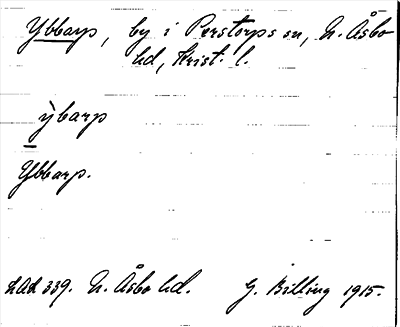 Ybbarp, by i Perstorps sn, N. Åsbo
hd, Krist. l.
ỳbarp
Ybbarp.
LAL 339. N. Åsbo hd. G. Billing 1915.